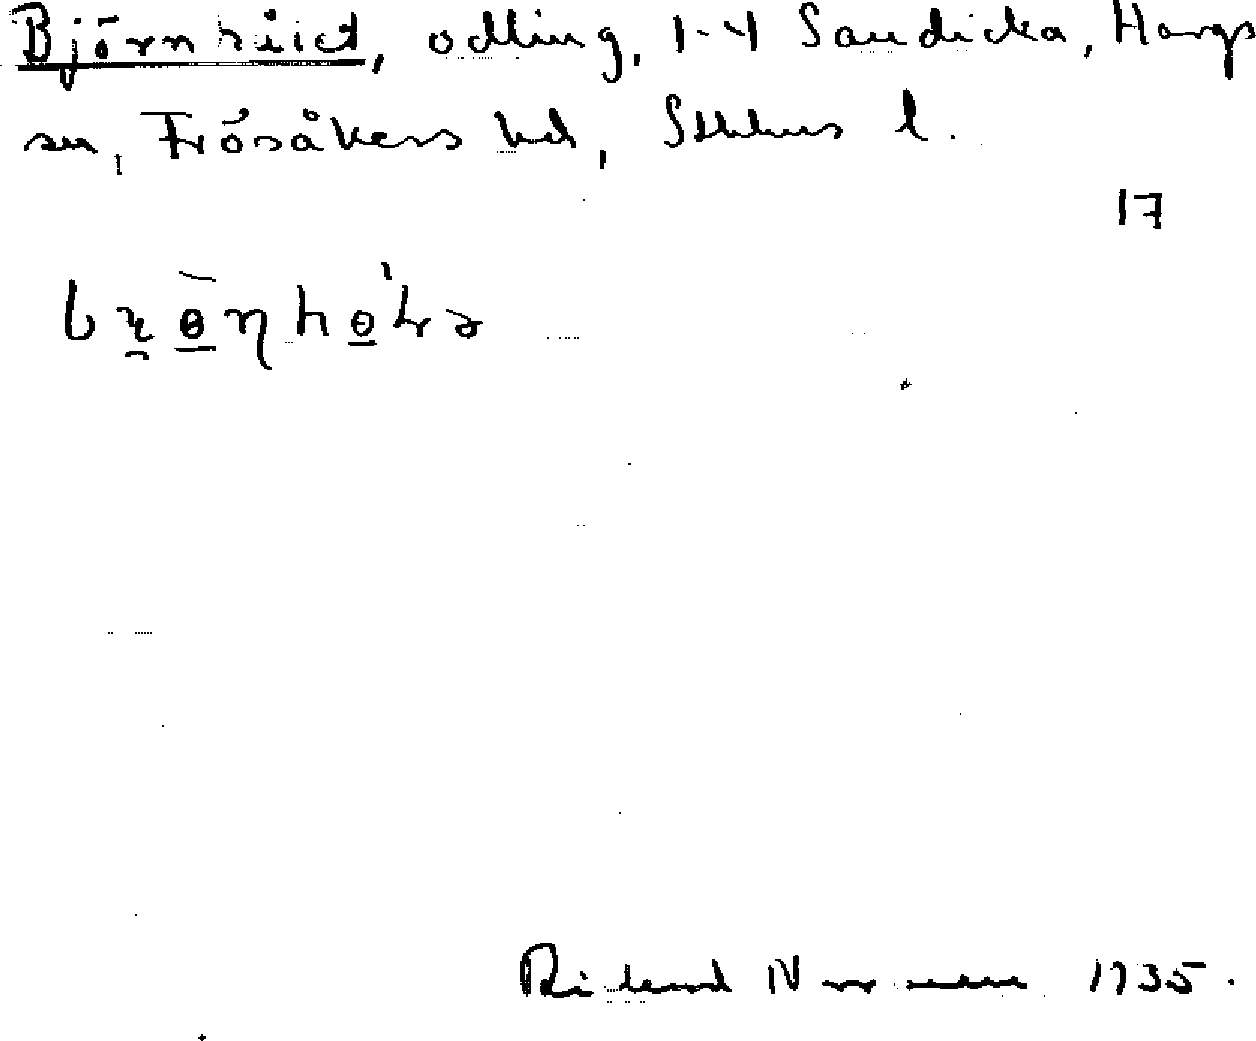 Björnhålet, odling, 1-4 Sandicka, Hargs
sn, Frösåkers hd, Sthlms l.
17
Rikard Norrman 1935.